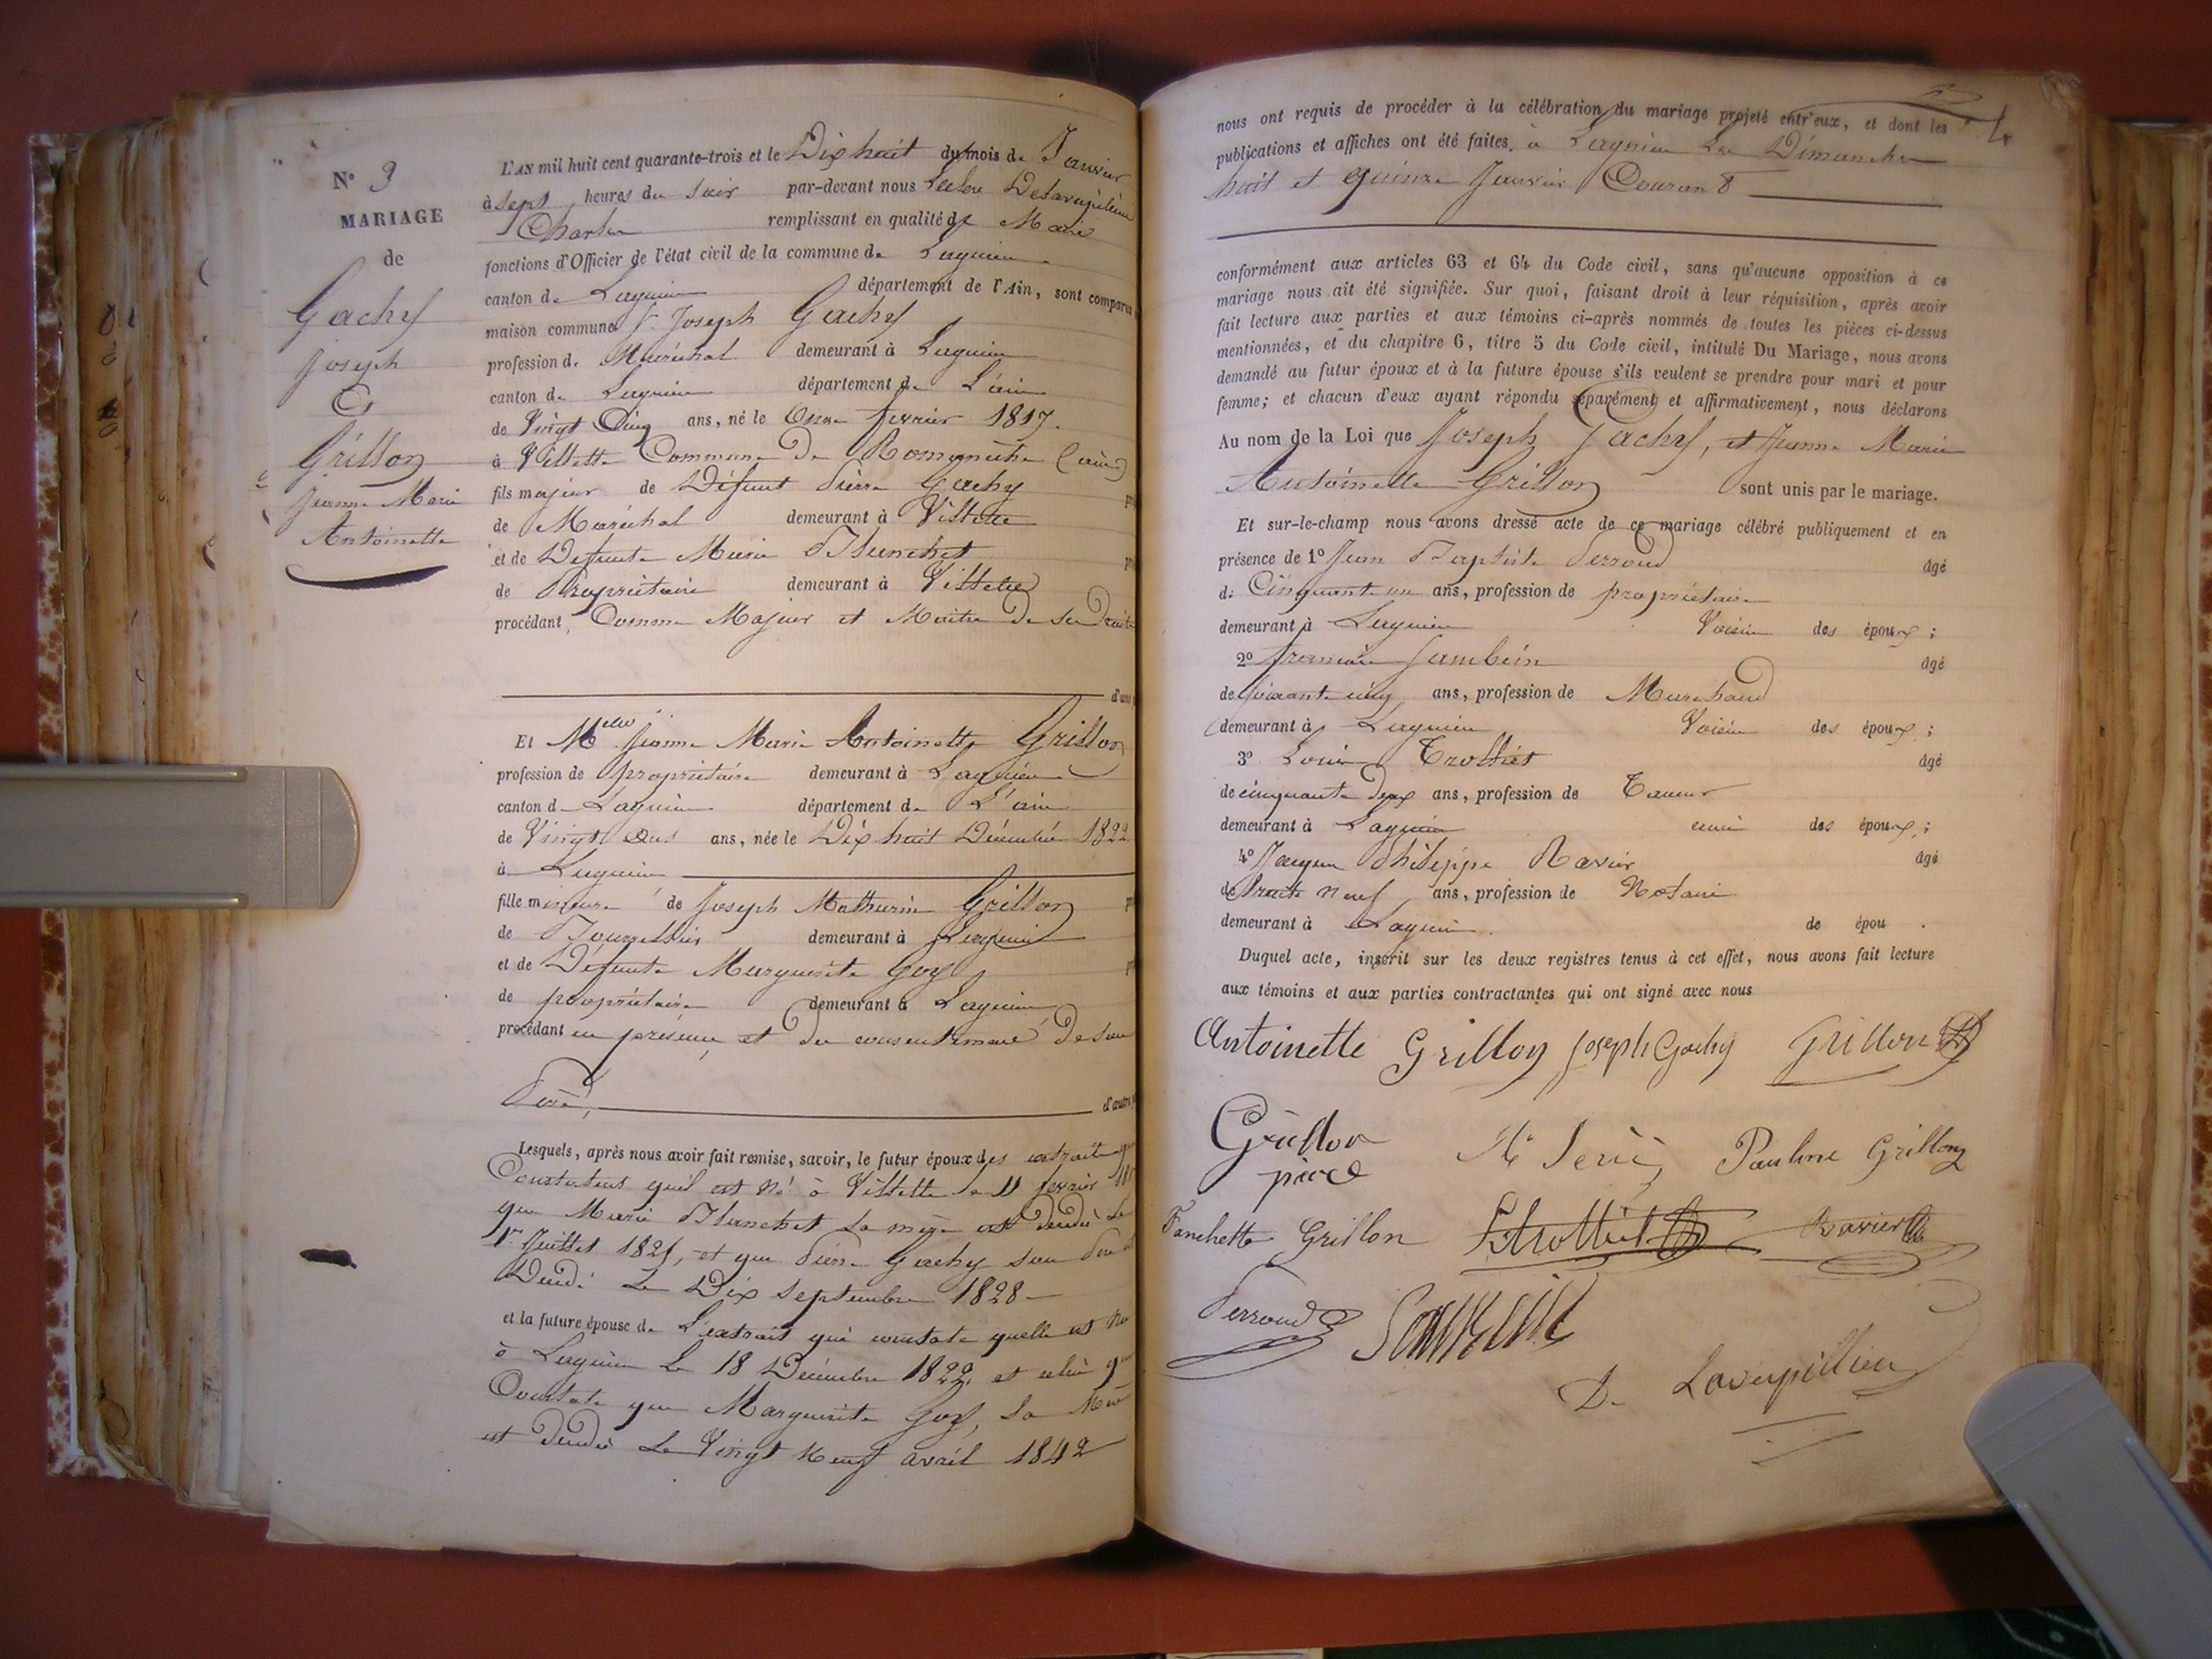 N° 3
MARIAGE
de
Gachy
Joseph
Et
Grillon
Jeanne Marie
Antoinette
L'AN mil huit cent quarante-trois et le Dix huit du mois de Janvier
à sept heures du soir par-devant nous Delavapilière
Charles remplissant en qualité de Maire
fonctions d'Officier de l'état civil de la commune de Lagnieu
canton de Lagnieu département de l'Ain, sont comparus
maison commune Joseph Gachy
profession de Maréchal demeurant à Lagnieu
canton de Lagnieu département de L'ain
de Vingt Cinq ans, né le Onze fevrier 1817.
à Villette Commune de Romanèche (ain)
fils majeur de Défunt Pierre Gachy
de Maréchal demeurant à Villette
et de Defunte Marie Blanchet
de Propriétaire demeurant à Villette
procédant Comme Majeur et Maitre de ses Droits
d'une
Et Melle Jeanne Marie Antoinette Grillon
profession de propriétaire demeurant à Lagnieu
canton de Lagnieu département de L'ain
de Vingt ans, née le Dix huit Décembre 1822
à Lagnieu
fille mineure de Joseph Mathurin Grillon
de Bourrellier demeurant à Lagnieu
et de Défunte Marguerite Goy
de propriétaire demeurant à Lagnieu
procédant en présence et du consentement de son
Père, d'autre
Lesquels, après nous avoir fait remise, savoir, le futur époux des extraits
Constatant qu'il est né à Villette le 11 fevrier
que Marie Blanchet sa mère est décédée le
1er Juillet 1821, et que Pierre Gachy son Père
Décédé Le Dix septembre 1828
et la future épouse de L'extrait qui constate quelle est née
à Lagnieu le 18 Décembre 1822, et celui
Constate que Marguerite Goy, sa Mère
est décédée Le Vingt Neuf avril 1842
4
nous ont requis de procéder à la célébration du mariage projeté entr'eux, et dont les
publications et affiches ont été faites, à Lagnieu Les Dimanches
huit et quinze Janvier Courant
conformément aux articles 63 et 64 du Code civil, sans qu'aucune opposition à ce
mariage nous ait été signifiée. Sur quoi, faisant droit à leur réquisition, après avoir
fait lecture aux parties et aux témoins ci-après nommés de toutes les pièces ci-dessus
mentionnées, et du chapitre 6, titre 5 du Code civil, intitulé Du Mariage, nous avons
demandé au futur époux et à la future épouse s'ils veulent se prendre pour mari et pour
femme; et chacun d'eux ayant répondu séparément et affirmativement, nous déclarons
Au nom de la Loi que Joseph Gachy, et Jeanne Marie
Antoinette Grillon sont unis par le mariage.
Et sur-le-champ nous avons dressé acte de ce mariage célébré publiquement et en
présence de 1° Jean Baptiste Perroud âgé
de Cinquante un ans, profession de propriétaire
demeurant à Lagnieu Voisin des époux ;
2° Jambein âgé
de soixante cinq ans, profession de Marchand
demeurant à Lagnieu Voisin des époux ;
3° Louis Trolliet âgé
de cinquante deux ans, profession de Tanneur
demeurant à Lagnieu ami des époux ;
4° Jacques Philippe Ravier âgé
de trente neuf ans, profession de Notaire
demeurant à Lagnieu. de épou .
Duquel acte, inscrit sur les deux registres tenus à cet effet, nous avons fait lecture
aux témoins et aux parties contractantes qui ont signé avec nous
Antoinette Grillon Joseph Gachy Grillon
Grillon
père
Pauline Grillon
Fanchette Grillon Trolliet Ravier
Perroud
De Lavapillière